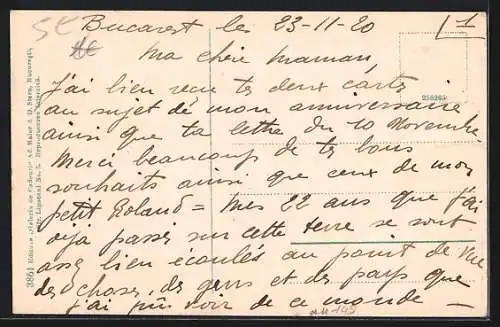 5€
Bucarest le 23-11-20
1
Ma chère Maman,
J'ai bien reçu tes deux cartes
au sujet de mon anniversaire
ainsi que ta lettre du 10 Novembre.
Merci beaucoup de tes bons
souhaits ainsi que ceux de mon
petit Roland = Mes 22 ans que j'ai
déjà passés sur cette terre se sont
assez bien écoulés au point de vue
des choses, des gens et des pays que
j'ai pu voir de ce monde —